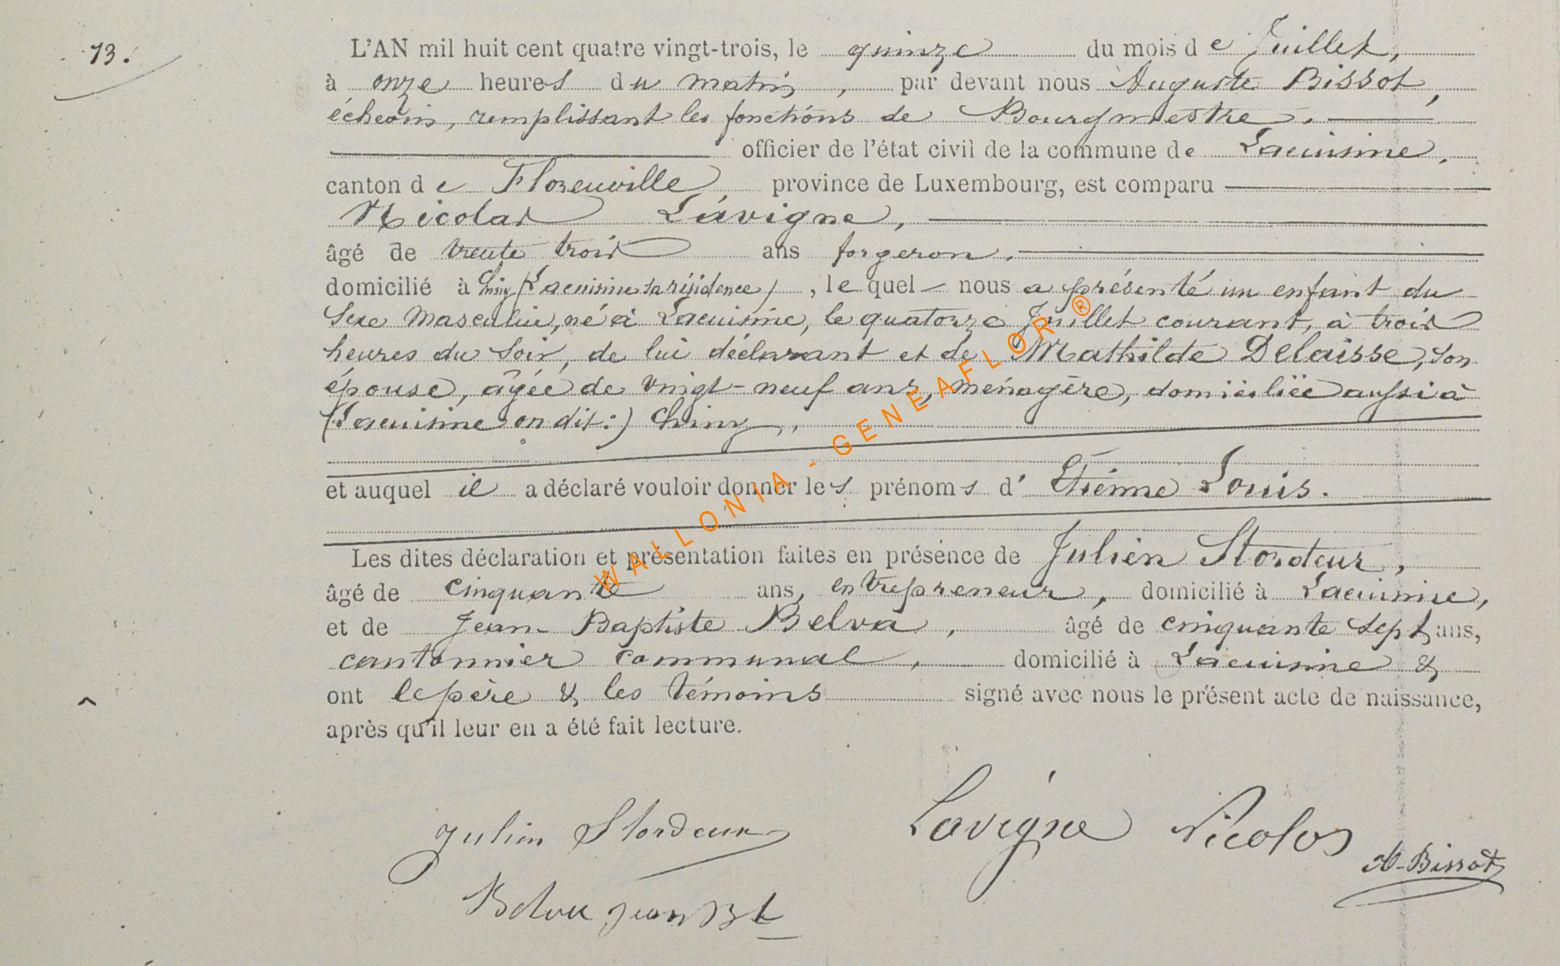 13.
L'AN mil huit cent quatre vingt-trois, le quinze du mois de Juillet,
à onze heures du matin, par devant nous Auguste Bissot,
échevin, remplissant les fonctions de Bourgmestre.
officier de l'état civil de la commune de Lacuisine,
canton de Florenville province de Luxembourg, est comparu
Nicolas Lavigne,
âgé de trente trois ans forgeron.
domicilié à Chiny (Lacuisine sa résidence), lequel nous a présenté un enfant du
sexe masculin, né à Lacuisine, le quatorze Juillet courant, à trois
heures du soir, de lui déclarant et de Mathilde Delaisse, son
épouse, âgée de vingt-neuf ans, ménagère, domiciliée aussi à
(Lacuisine on dit:) Chiny,
et auquel il a déclaré vouloir donner les prénoms d' Etienne Louis.
Les dites déclaration et présentation faites en présence de Julien Stordeur,
âgé de cinquante ans, entrepreneur, domicilié à Lacuisine,
et de Jean-Baptiste Belva, âgé de cinquante sept ans,
cantonnier communal, domicilié à Lacuisine &
ont le père & les témoins signé avec nous le présent acte de naissance,
après qu'il leur en a été fait lecture.
Julien Stordeur Lavigne Nicolas
A. Bissot
Belva Jean Bt
WALLONIA - GENEAFLOR ®